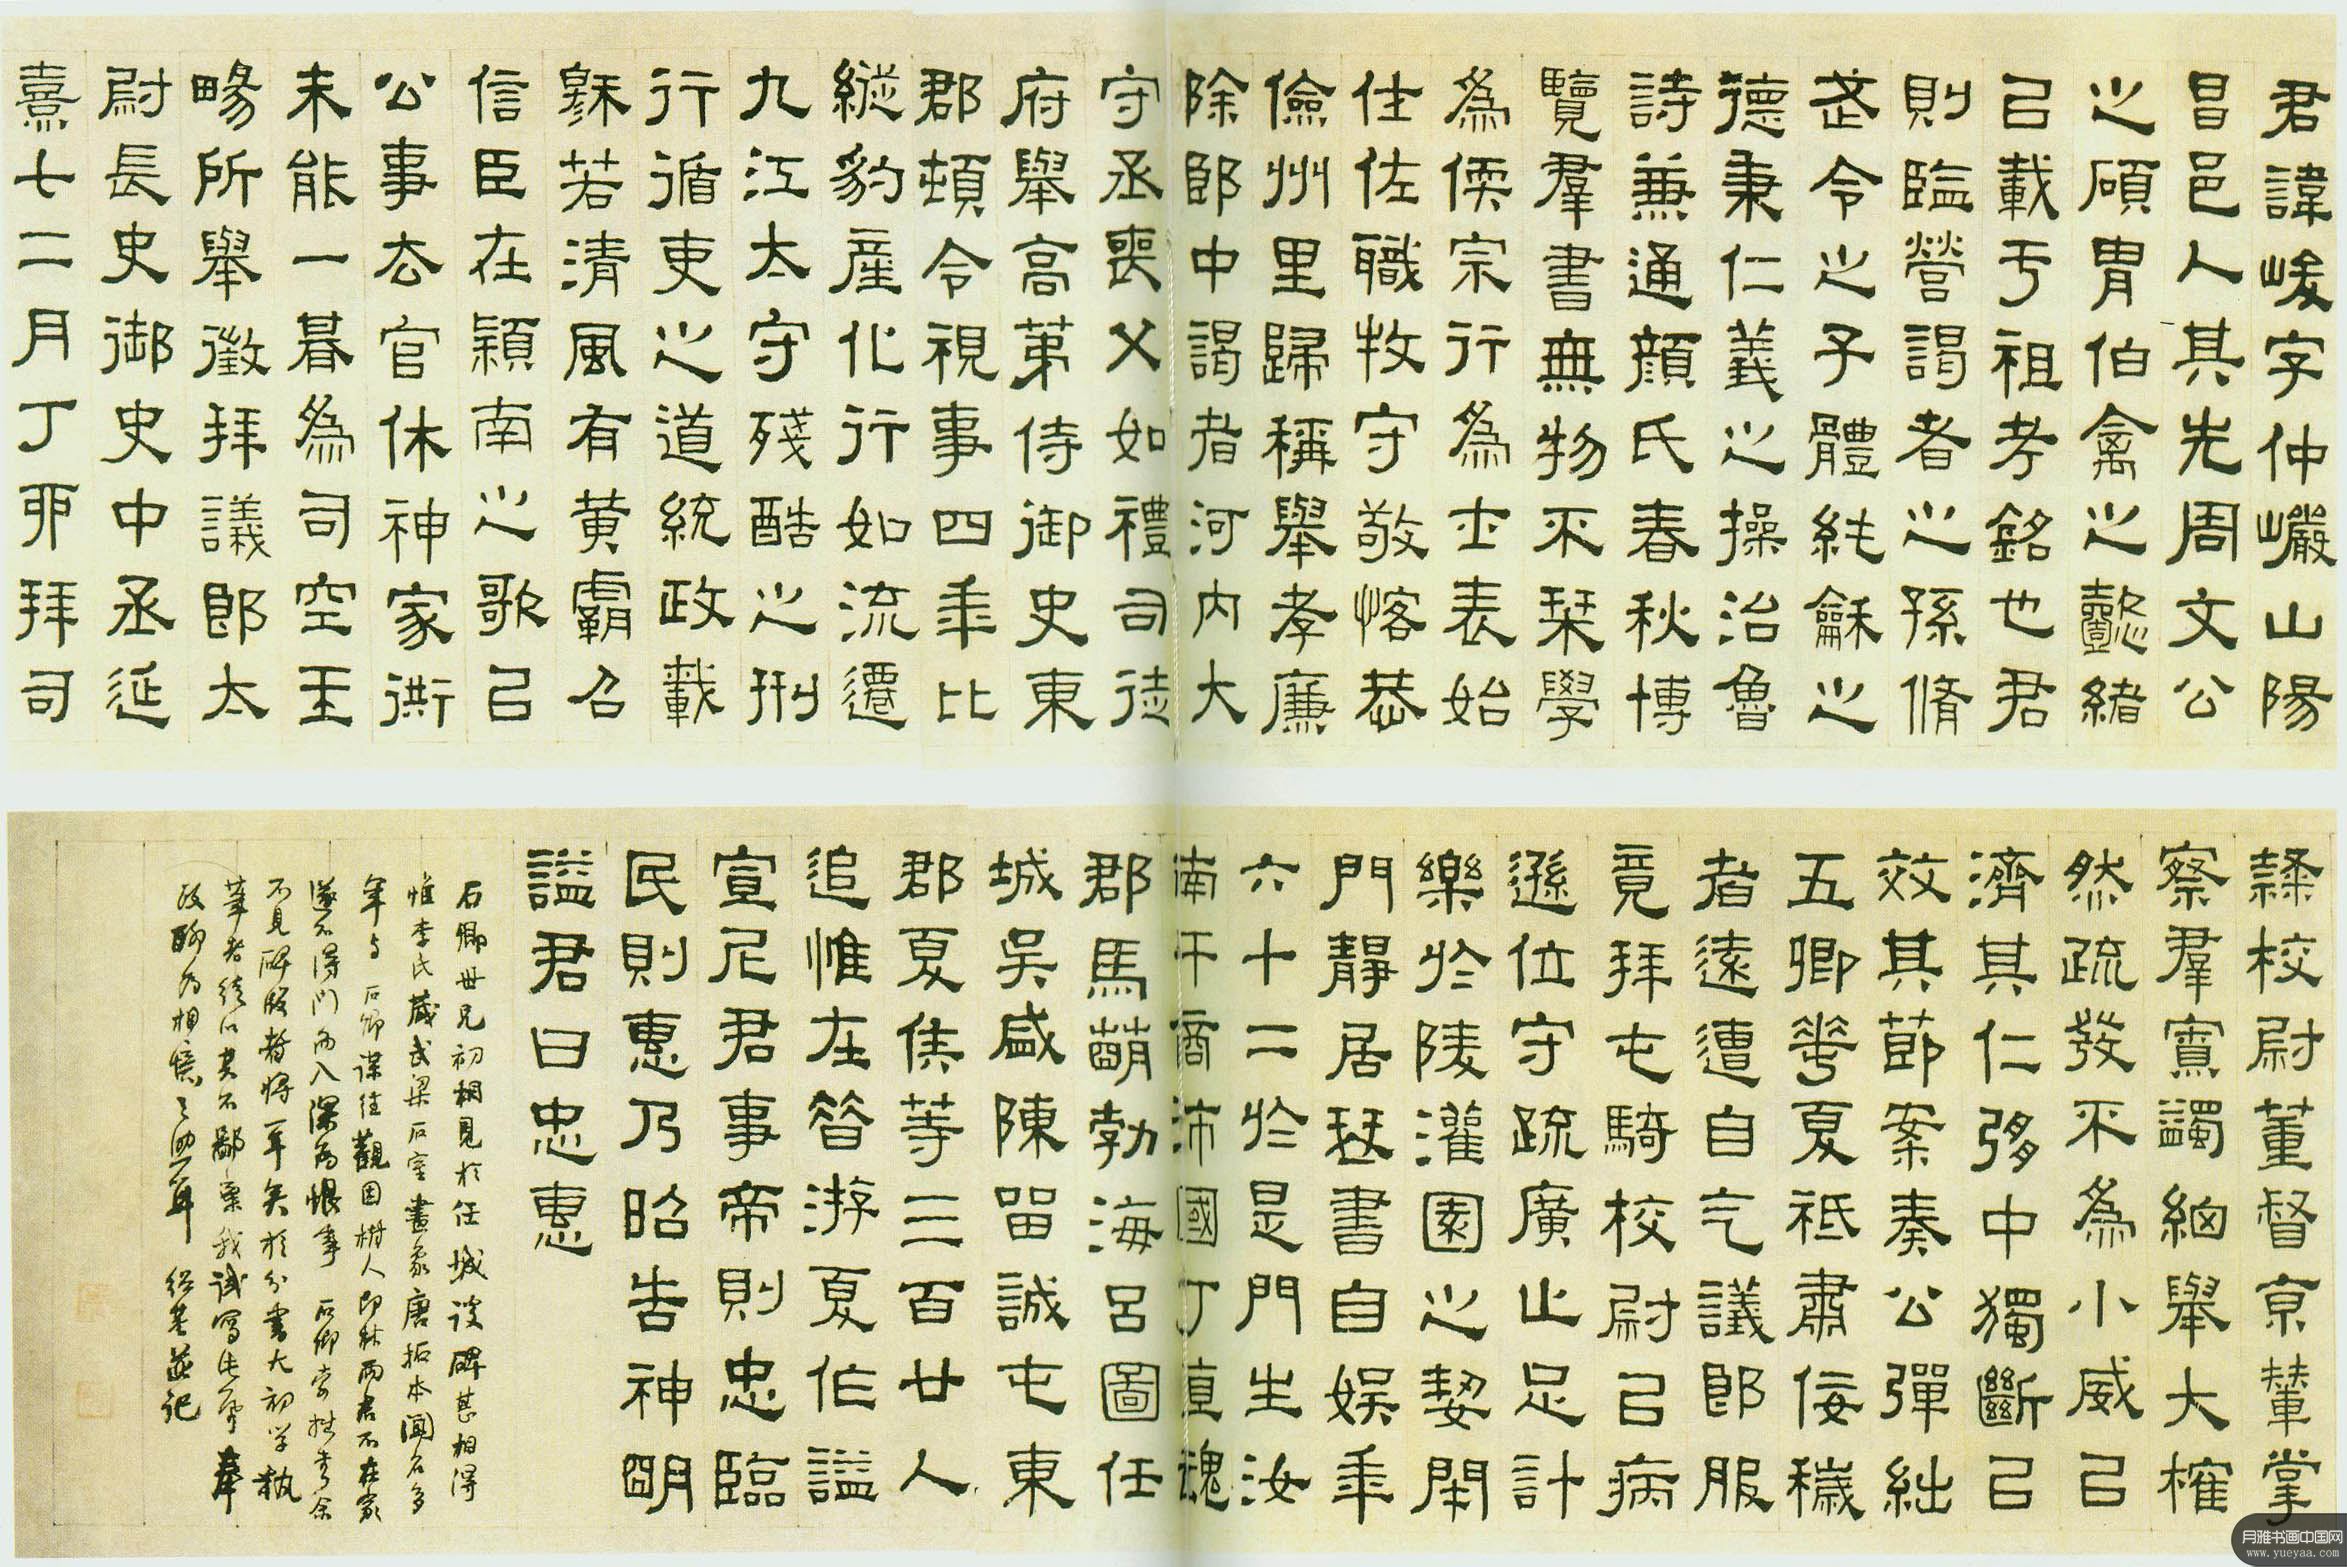 君諱峻字仲巖山陽
昌邑人其先周文公
之碩胄伯禽之懿緒
㠯載于祖考銘也君
則臨營謁者之孫脩
武令之子體純龢之
德秉仁義之操治魯
詩兼通顏氏春秋博
覽羣書無物不栞學
為傆宗行為士表始
仕佐職牧守敬恪恭
儉州里歸稱舉孝廉
除郎中謁者河內大
守丞喪父如禮司徒
府舉高第侍御史東
郡頓令視事四年比
縱豹產化行如流遷
九江太守殘酷之刑
行循吏之道統政載
穌若清風有黃霸召
信臣在潁南之歌㠯
公事去官休神家衖
未能一朞為司空王
暢所舉徵拜議郎太
尉長史御史中丞延
熹七二月丁卯拜司
隸校尉董督京輦掌
察羣寮蠲細舉大榷
然疏發不為小威㠯
濟其仁弸中獨斷㠯
效其節案奏公彈絀
五卿華夏祗肅佞穢
者遠遭自乞議郎服
竟拜屯騎校尉㠯病
遜位守疏廣止足計
樂於陵灌園之契閑
門靜居琴書自娛年
六十二於是門生汝
南干商沛國丁直魏
郡馬萌勃海呂圖任
城吳盛陳留誠屯東
郡夏侯等三百廿人
追惟在昔游夏作謚
宣尼君事帝則忠臨
民則惠乃昭告神明
謚君曰忠惠
石卿世兄初相見於任城談碑甚相得
惟李氏藏武梁石室畫象唐拓本聞名多
年與石卿謀往觀因樹人即林兩君不在家
遂不得門而入深為恨事石卿索拙書余
不見碑版者將一年矣於分書大初學執
筆者然以其不鄙棄我試寫生澀奉
政聊為相憶之
紹基並記
月雅书画中国网
www.yueyaa.com